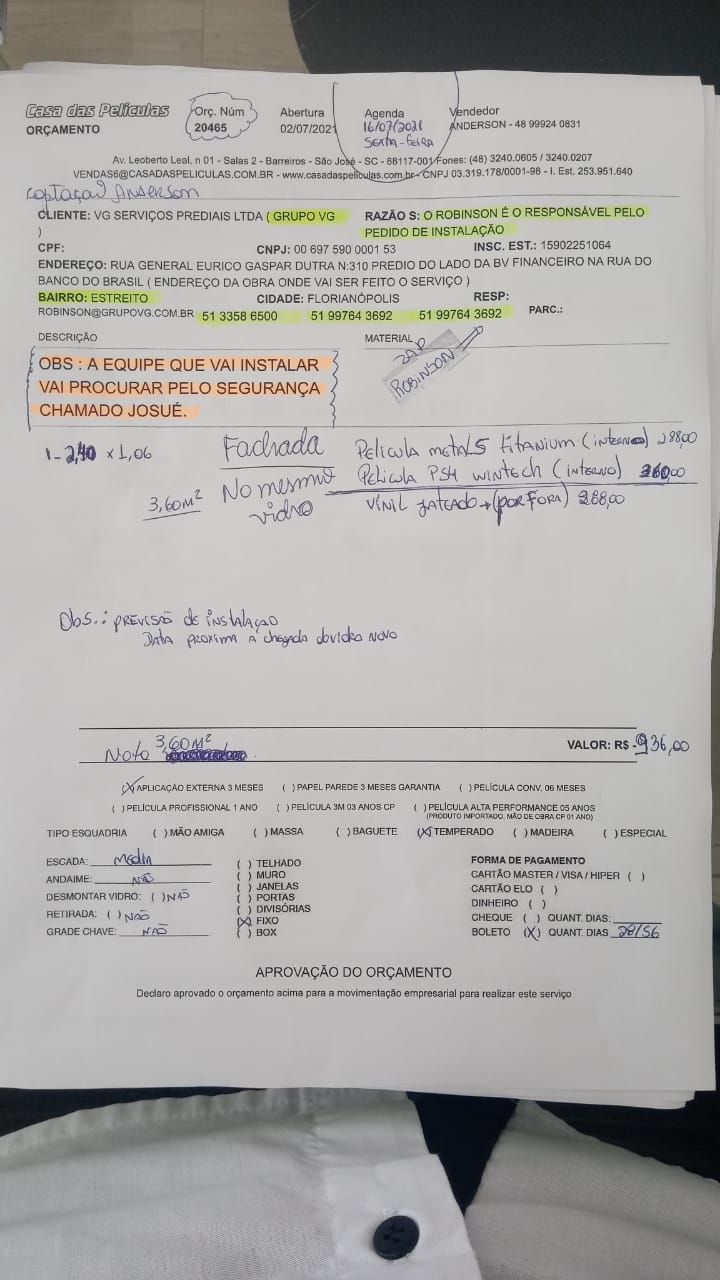 Casa das Películas
ORÇAMENTO
Orç. Núm
20465
Abertura
02/07/2021
Agenda
16/07/2021
SEXTA-FEIRA
Vendedor
ANDERSON - 48 99924 0831
Av. Leoberto Leal, n 01 - Salas 2 - Barreiros - São José - SC - 88117-001 Fones: (48) 3240.0605 / 3240.0207
VENDAS6@CASADASPELICULAS.COM.BR - www.casadaspeliculas.com.br - CNPJ 03.319.178/0001-98 - I. Est. 253.951.640
Captação Anderson
CLIENTE: VG SERVIÇOS PREDIAIS LTDA ( GRUPO VG
)
RAZÃO S: O ROBINSON É O RESPONSÁVEL PELO
PEDIDO DE INSTALAÇÃO
CPF: CNPJ: 00 697 590 0001 53 INSC. EST.: 15902251064
ENDEREÇO: RUA GENERAL EURICO GASPAR DUTRA N:310 PREDIO DO LADO DA BV FINANCEIRO NA RUA DO
BANCO DO BRASIL ( ENDEREÇO DA OBRA ONDE VAI SER FEITO O SERVIÇO )
BAIRRO: ESTREITO CIDADE: FLORIANÓPOLIS RESP:
ROBINSON@GRUPOVG.COM.BR 51 3358 6500 51 99764 3692 51 99764 3692 PARC.:
DESCRIÇÃO MATERIAL
ZAP
ROBINSON
OBS : A EQUIPE QUE VAI INSTALAR
VAI PROCURAR PELO SEGURANÇA
CHAMADO JOSUÉ.
1- 2,40 x 1,06 Fachada Pelicula metal 5 titanium (interno) 288,00
3,60M² No mesmo vidro Pelicula PS4 wintech (interno) 360,00
Vinil jateado → (por fora) 288,00
Obs.: PREVISÃO de instalação
Data proxima a chegada do vidro novo
Nota 3,60M²
VALOR: R$ 936,00
(X) APLICAÇÃO EXTERNA 3 MESES ( ) PAPEL PAREDE 3 MESES GARANTIA ( ) PELÍCULA CONV. 06 MESES
( ) PELÍCULA PROFISSIONAL 1 ANO ( ) PELÍCULA 3M 03 ANOS CP ( ) PELÍCULA ALTA PERFORMANCE 05 ANOS
(PRODUTO IMPORTADO, MÃO DE OBRA CP 01 ANO)
TIPO ESQUADRIA ( ) MÃO AMIGA ( ) MASSA ( ) BAGUETE (X) TEMPERADO ( ) MADEIRA ( ) ESPECIAL
ESCADA: Media
ANDAIME: NÃO
DESMONTAR VIDRO: ( ) NÃO
RETIRADA: ( ) NÃO
GRADE CHAVE: NÃO
( ) TELHADO
( ) MURO
( ) JANELAS
( ) PORTAS
( ) DIVISÓRIAS
(X) FIXO
( ) BOX
FORMA DE PAGAMENTO
CARTÃO MASTER / VISA / HIPER ( )
CARTÃO ELO ( )
DINHEIRO ( )
CHEQUE ( ) QUANT. DIAS:
BOLETO (X) QUANT. DIAS 28/56
APROVAÇÃO DO ORÇAMENTO
Declaro aprovado o orçamento acima para a movimentação empresarial para realizar este serviço